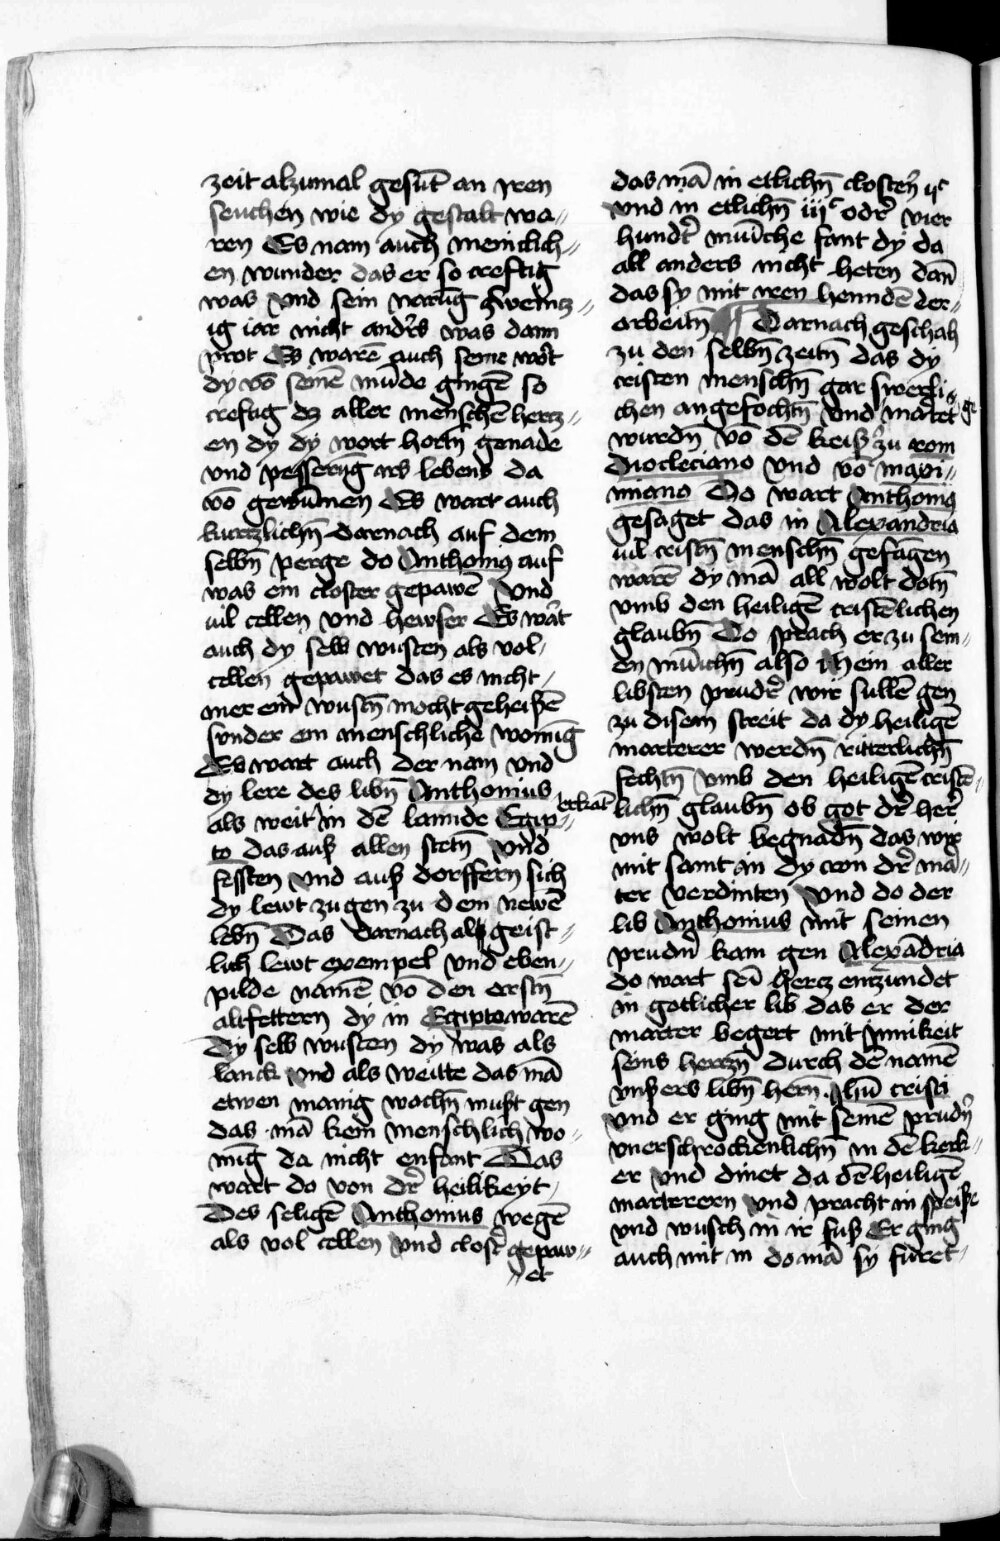 zeit alzumal gesūt an yren
seuchen wie dÿ gestalt wa„
ren Es nam auch menclich„
en wunder. das er so creftig
was vnd sein narūg zweincz„
ig iar nicht andr̄s was dann
prot Es warē auch seine wort
dÿ võ seinē mūde gingē so
creftig dz aller menschē hercz„
en dÿ dÿ wort hortn̄ genade
vnd pesserūg irs lebens da
võ gewūnen Es wart auch
kurczlichn̄ darnach auf dem
selbn̄ perge do Anthonius auf
was ein closter gepawē vnd
uil cellen vnd hewser Es wart
auch dÿ selb wusten als vol„
cellen gepawet das es nicht„
mer ein wustn̄ mocht geheißē
sunder ein menschliche wonūg
Es wart auch der nam vnd
dÿ lere des libn̄ Anthonius
als weit in dē lannde Egip„ erkant
to das auß allen stetn̄ vnd
festen vnd auß dorffern sich
dÿ lewt zugen zu dem newē
lebn̄ Das darnach als geist„
lich lewt exempel vnd eben„
pilde namē võ den erstn̄
altfettern dÿ in Egipto warē
Dÿ selb wusten dÿ was als
lanck vnd als weitte das mā
etwen manig wochn̄ must gen
das mā kein menschlich wo„
nūg da nicht enfant Das
wart do von dr̄ heilikeyt„
Des seligē Anthonius wegē
als vol cellen vnd clost̄ gepaw„
„et
das mā in etlichn̄ closten̄ ijc
vnd in etlichn̄ iijc odr̄ vier
hundt̄ mūche fant dÿ da
all anders nicht heten dān
das sy mit iren hennden der„
arbeitn̄ ¶ Darnach geschah
zu den selbn̄ zeitn̄ das dÿ
cristen menschn̄ gar swerli„
chen angefochtn̄ vnd martet ge
wurdn̄ võ dē keiß̄ zu rom
Diocleciano vnd võ maxi„
miano Do wart Anthonius
gesaget das in Alexandria
uil cristn̄ menschn̄ gefāgen
warē dÿ mā all wolt dotn̄
vmb den heiligē cristēlichen
glaubn̄ Do sprach er zu sein„
en mūichn̄ also Mein aller
libsten prudr̄ wir sullē gen
zu disem streit da dÿ heiligē
marterer werdn̄ ritterlichn̄
fechtn̄ vmb den heiligē cristē„
lichn̄ glaubn̄ ob got dr̄ her̄
vns wolt begnadn̄ das wir
mit samt an dÿ cron dr̄ mā„
ter verdinten vnd do der
lib Anthonius mit seinen
prudn̄ kam gen Alexādria
do wart sei̅ hercz enzundet
in gotlicher lib das er der
marter begert mit innikeit
seins herczn̄ durch dē namē
vnßers libn̄ hern̄. Jhū cristi
vnd er ging mit seinē prudn̄
vnerschrockenlichn̄ in dē kerk„
er vnd dinet da dē heiligē
marterern vnd pracht in speiße
vnd wusch in ir fuß Er ging
auch mit in do mā sÿ furet„